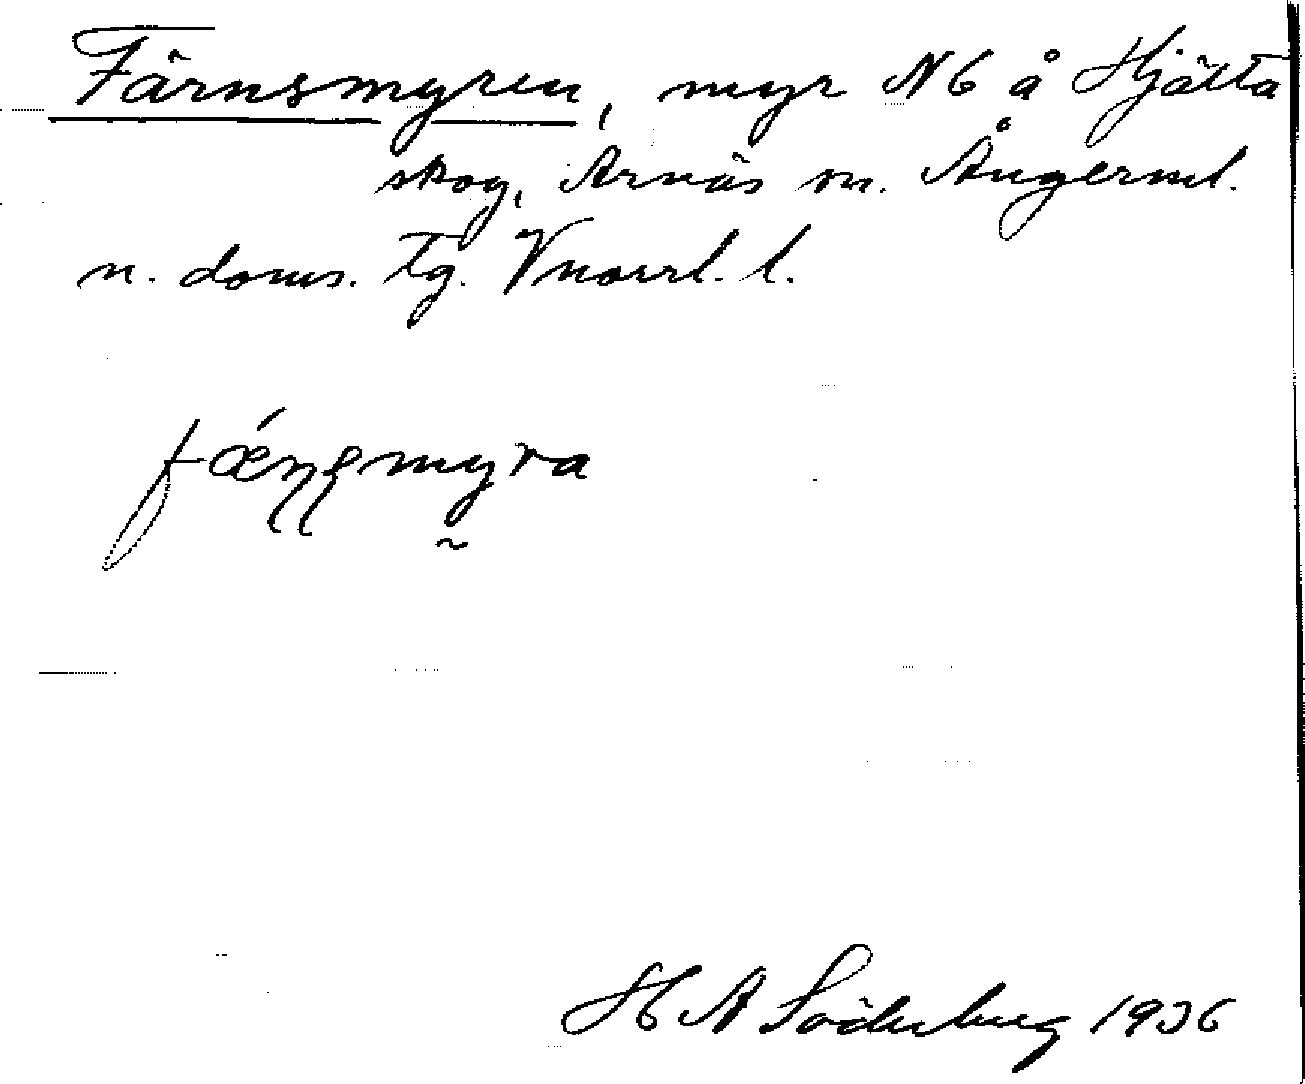 Färnsmyren, myr N6 å Hjälta
skog, Arnäs sn. Ångerml.
n. doms. tg. Vnorrl. l.
fǽɳʂmyra
H A Söderberg 1936